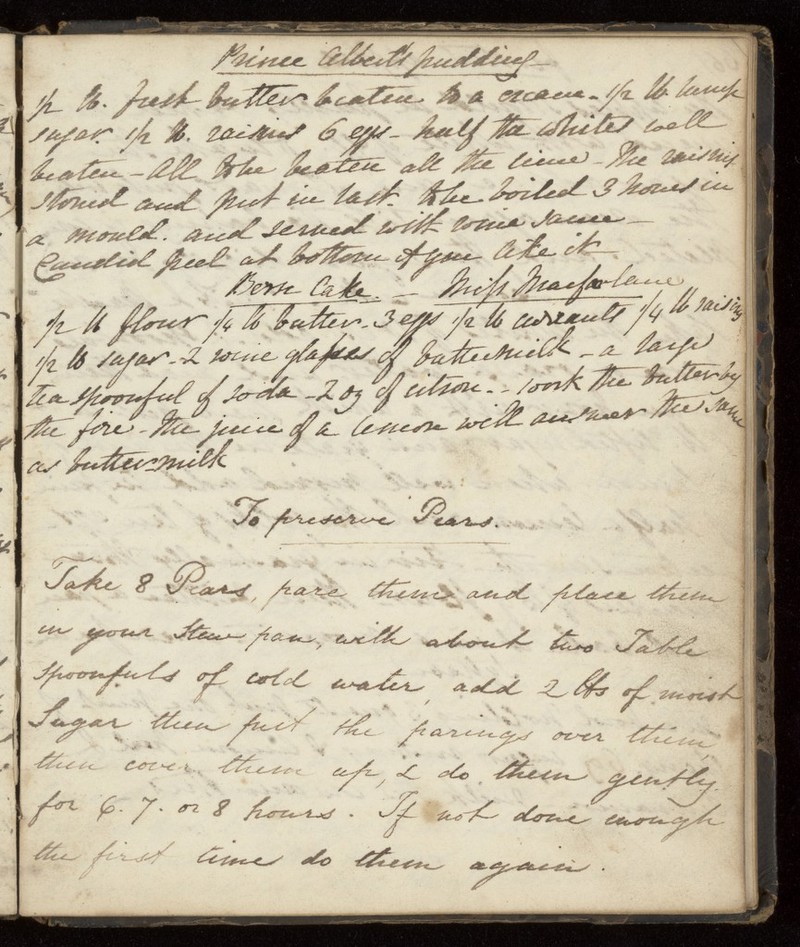 Prince Albert's pudding
1/2 lb. fresh butter beaten to a cream - 1/2 lb lump
sugar 1/2 lb. raisins 6 eggs - half the whites well
beaten - All to be beaten all the time - The raisins
stoned and put in last to be boiled 3 hours in
a mould. and served with some sauce -
Candid peel at bottom if you like it
Cake. - Miss Macfarlane
1/2 lb flour 1/4 lb butter - 3 eggs 1/2 lb currants 1/4 lb raisins
1/2 lb sugar - 2 wine glasses of buttermilk - a large
tea spoonful of soda - 2 oz of citron. - work the butter by
the fire - the juice of a lemon will answer the same
as buttermilk
To preserve Pears.
Take 8 Pears, pare them and place them
in your stew pan, with about two Table
spoonfuls of cold water, add 2 lbs of moist
Sugar then put the parings over them,
then cover them up, & do them gently
for 6. 7. or 8 hours. If not done enough
the first time do them again.